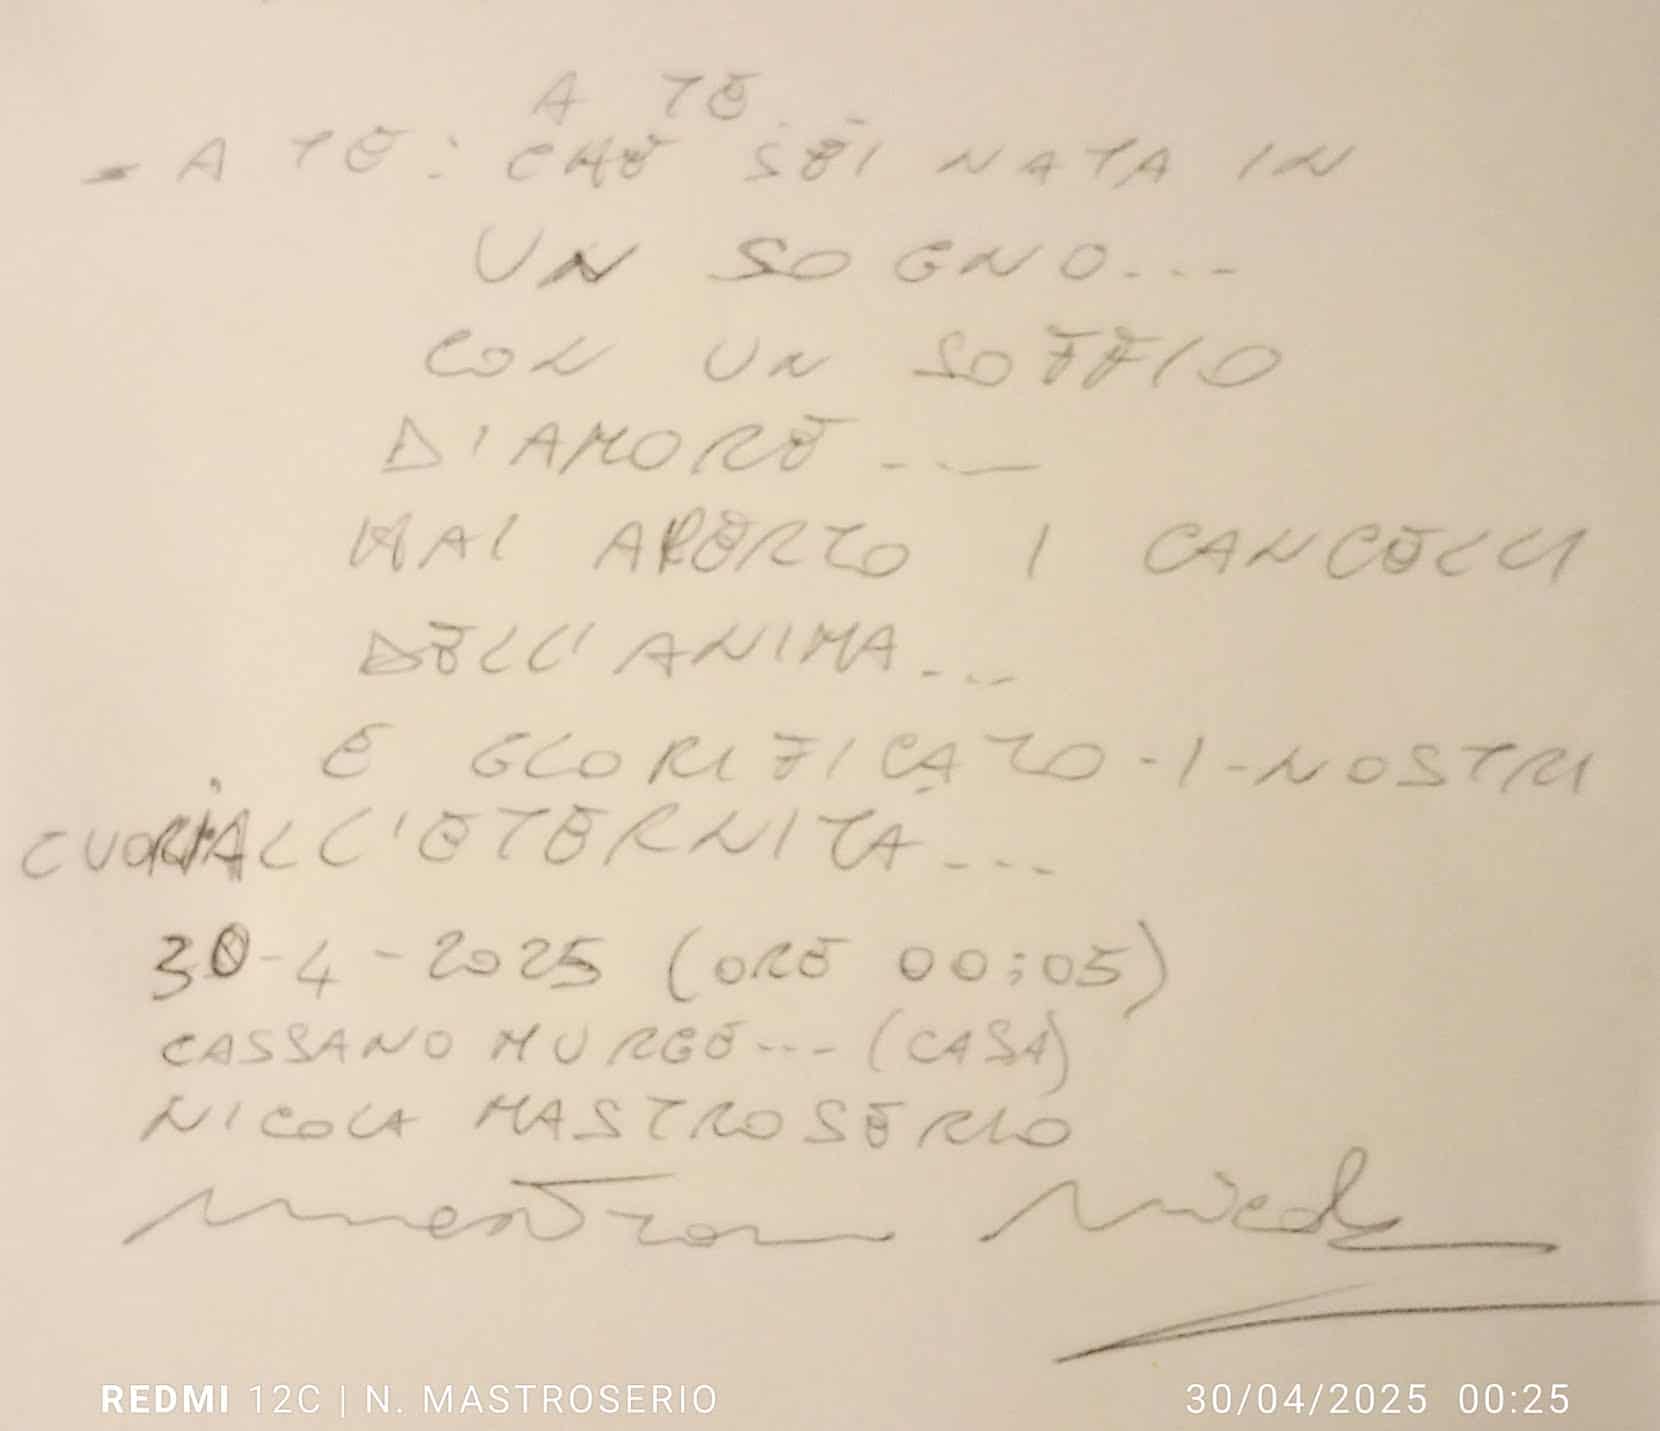 A TE...
- A TE: CHE SEI NATA IN
UN SOGNO...
CON UN SOFFIO
D'AMORE...
HAI APERTO I CANCELLI
DELL'ANIMA...
E GLORIFICATO-I-NOSTRI
CUORI ALL'ETERNITA...
30-4-2025 (ORE 00:05)
CASSANO MURGE... (CASA)
NICOLA MASTROSERIO
REDMI 12C | N. MASTROSERIO
30/04/2025 00:25